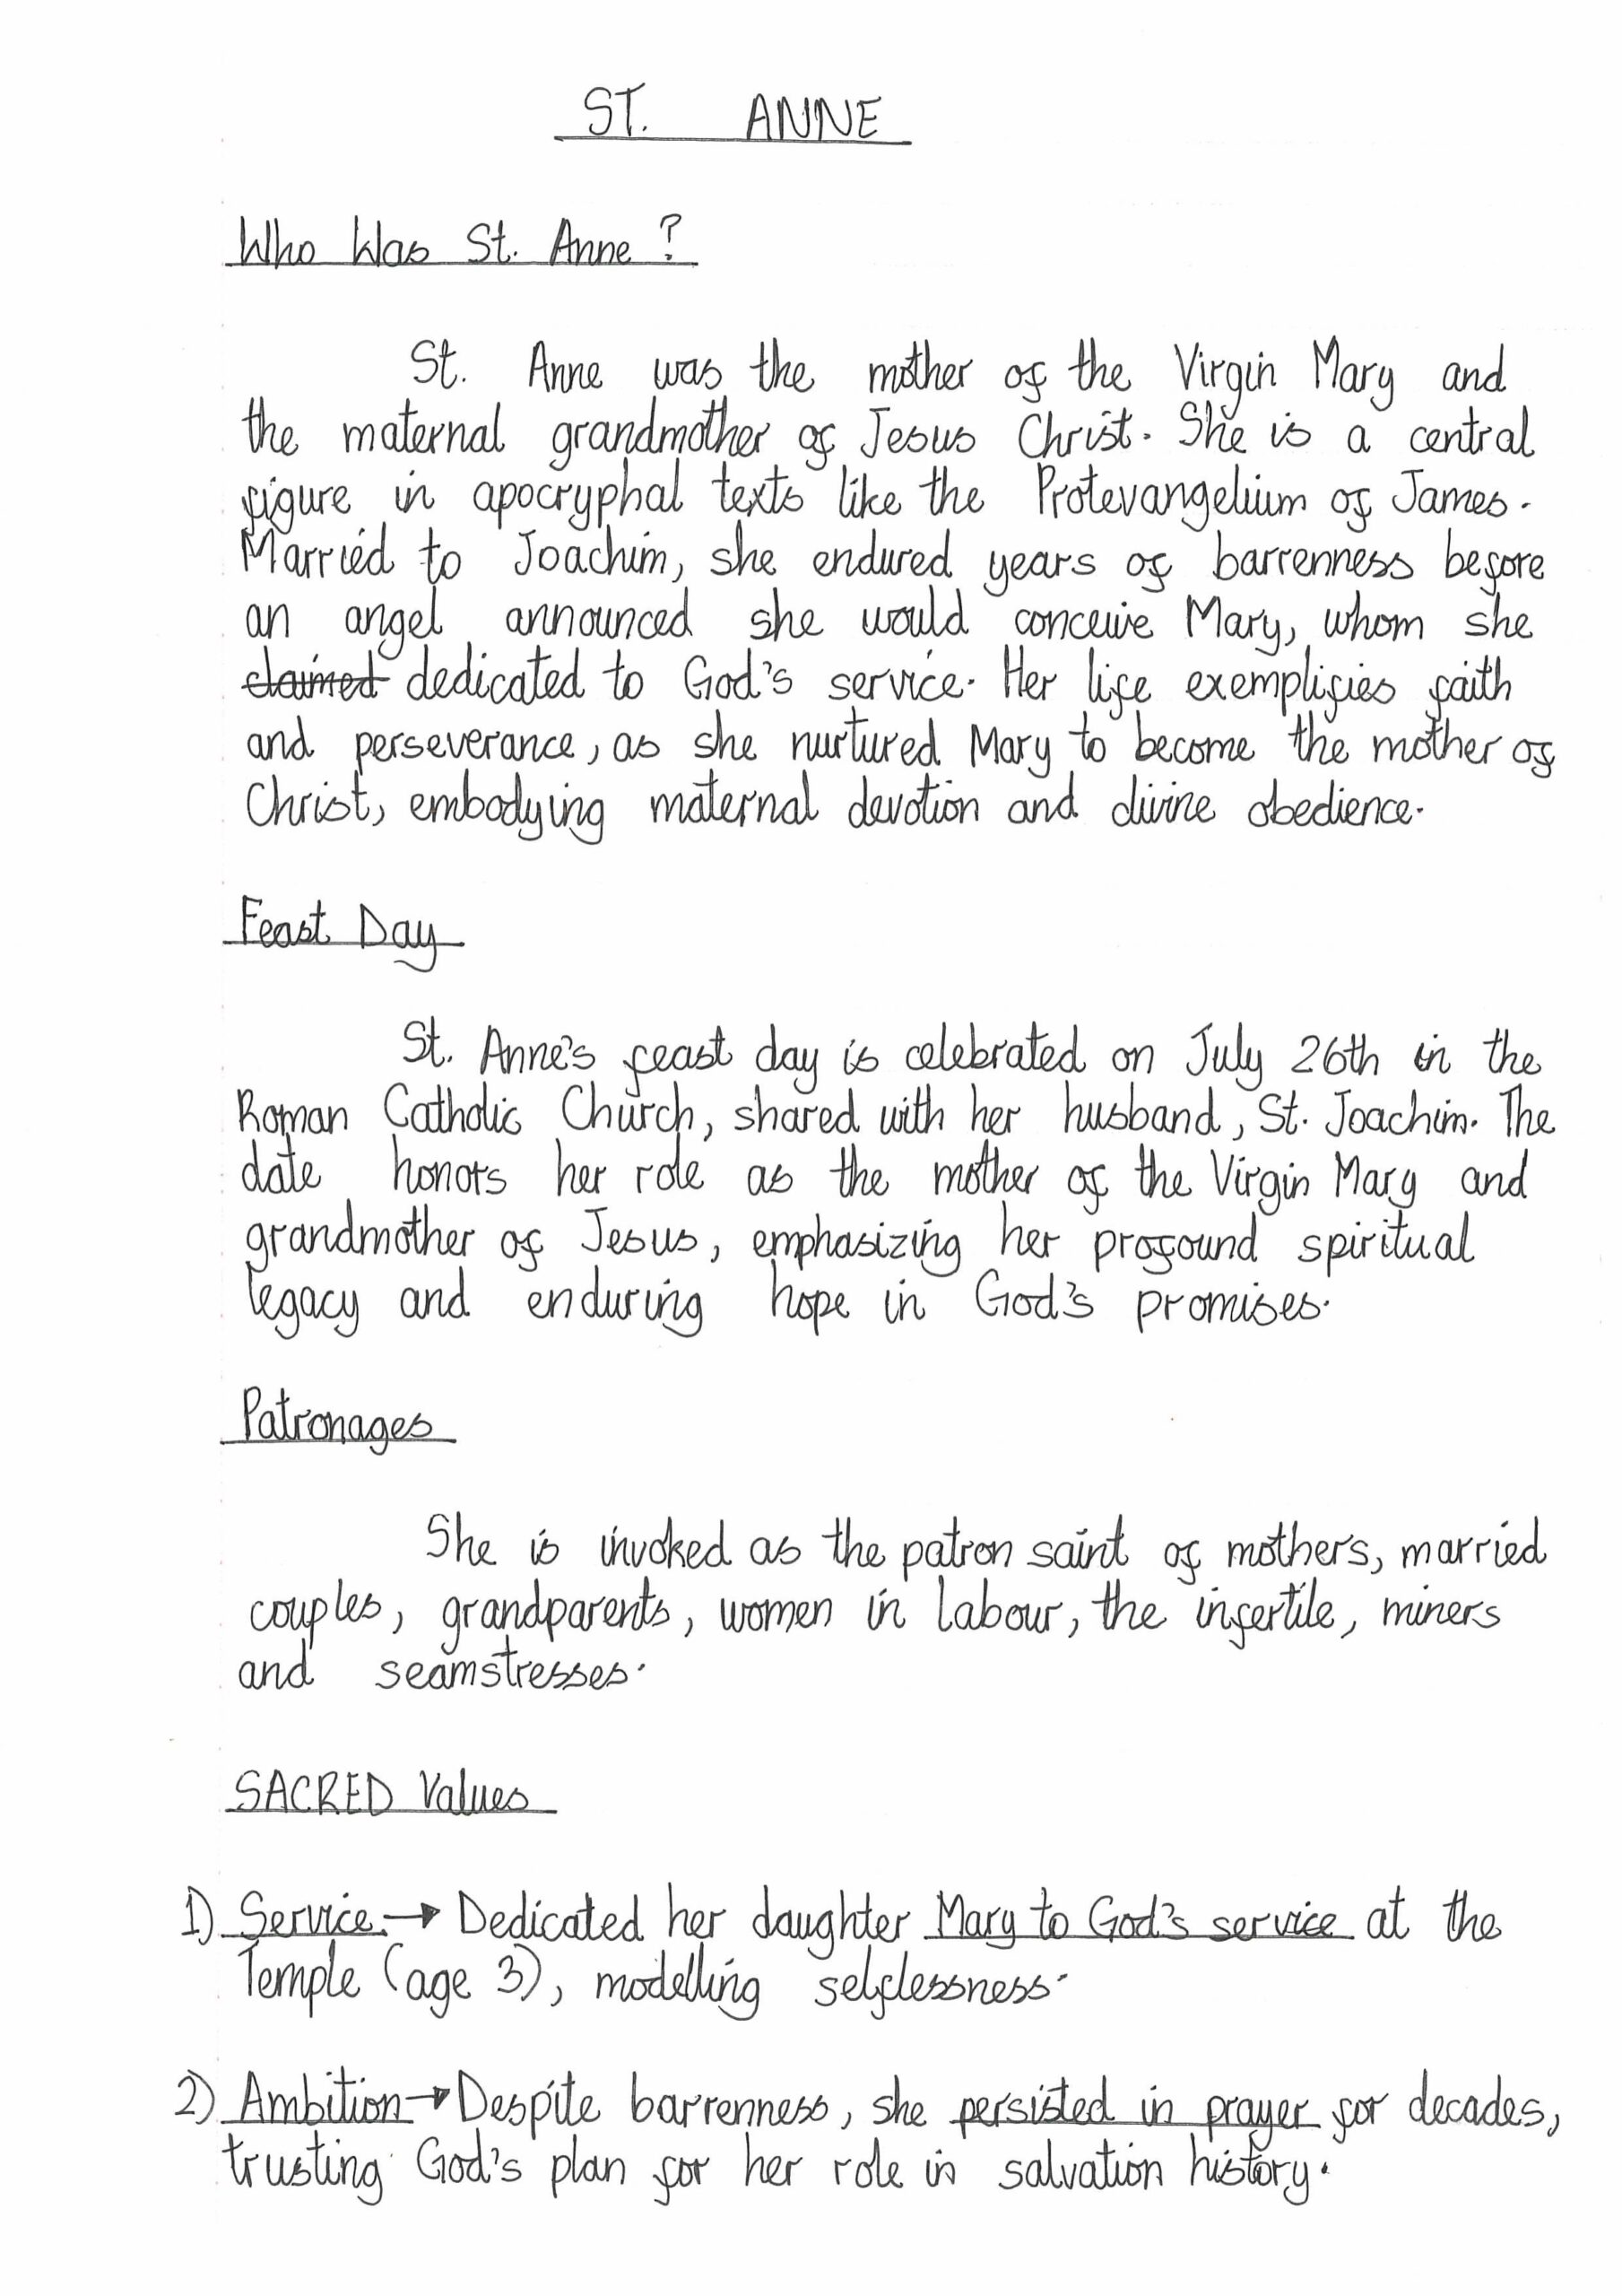 ST. ANNE
Who Was St. Anne?
St. Anne was the mother of the Virgin Mary and
the maternal grandmother of Jesus Christ. She is a central
figure in apocryphal texts like the Protevangelium of James.
Married to Joachim, she endured years of barrenness before
an angel announced she would conceive Mary, whom she
claimed dedicated to God's service. Her life exemplifies faith
and perseverance, as she nurtured Mary to become the mother of
Christ, embodying maternal devotion and divine obedience.
Feast Day
St. Anne's feast day is celebrated on July 26th in the
Roman Catholic Church, shared with her husband, St. Joachim. The
date honors her role as the mother of the Virgin Mary and
grandmother of Jesus, emphasizing her profound spiritual
legacy and enduring hope in God's promises.
Patronages
She is invoked as the patron saint of mothers, married
couples, grandparents, women in labour, the infertile, miners
and seamstresses.
SACRED Values
1) Service → Dedicated her daughter Mary to God's service at the
Temple (age 3), modelling selflessness.
2) Ambition → Despite barrenness, she persisted in prayer for decades,
trusting God's plan for her role in salvation history.